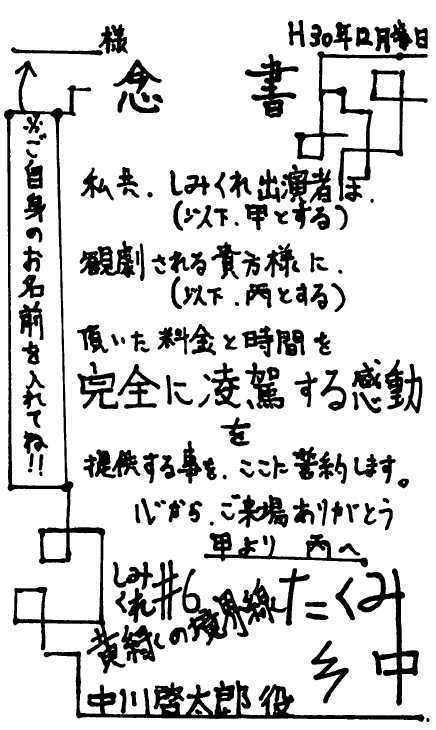 H30年12月毎日
様
念書
※ご自身のお名前を入れてね!!
私共、しみくれ出演者は、
(以下、甲とする)
観劇される貴方様に、
(以下、丙とする)
頂いた料金と時間を
完全に凌駕する感動
を
提供する事を、ここに誓約します。
心から、ご来場ありがとう
甲より 丙へ
しみくれ#6
黄緑の境界線
たくみ
中川啓太郎役